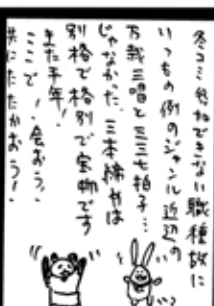 冬コミ参加できない職種故に
いつもの例のジャンル近辺の
万歳三唱と三三七拍子…
じゃなかった、三本締めは
別格で格別で宝物です
また半年!
ここで!会おう!
共にたたかおう!